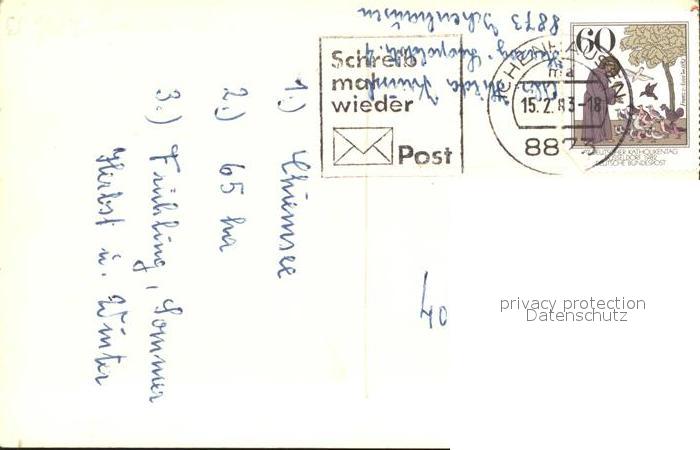 8873 Ichenhausen
Schreib
mal
wieder
Post
15.2.83-18
8873
60
DEUTSCHER KATHOLIKENTAG
DÜSSELDORF 1982
DEUTSCHE BUNDESPOST
1.) Chiemsee
2.) 65 ha
3.) Frühling, Sommer
Herbst u. Winter
privacy protection
Datenschutz